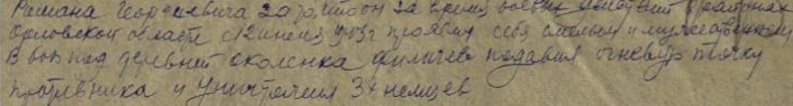 Романа Георгиевича за то, что он за время боевых действий в районах
Орловской области с 12 июля 943 г проявил себя смелым и мужественным
В бою под деревней околенка подавил огневую точку
противника и уничтожил 3х немцев